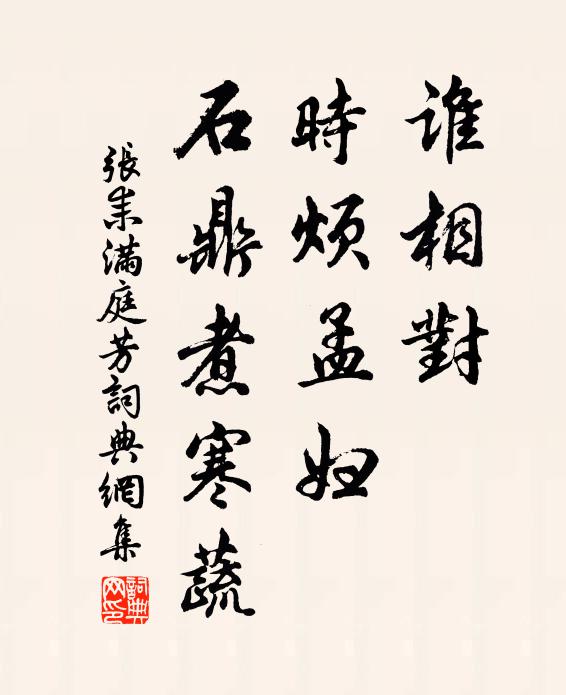 誰相對
時煩孟妇
石鼎煮寒蔬
張耒滿庭芳詞典網集
詞典
网印